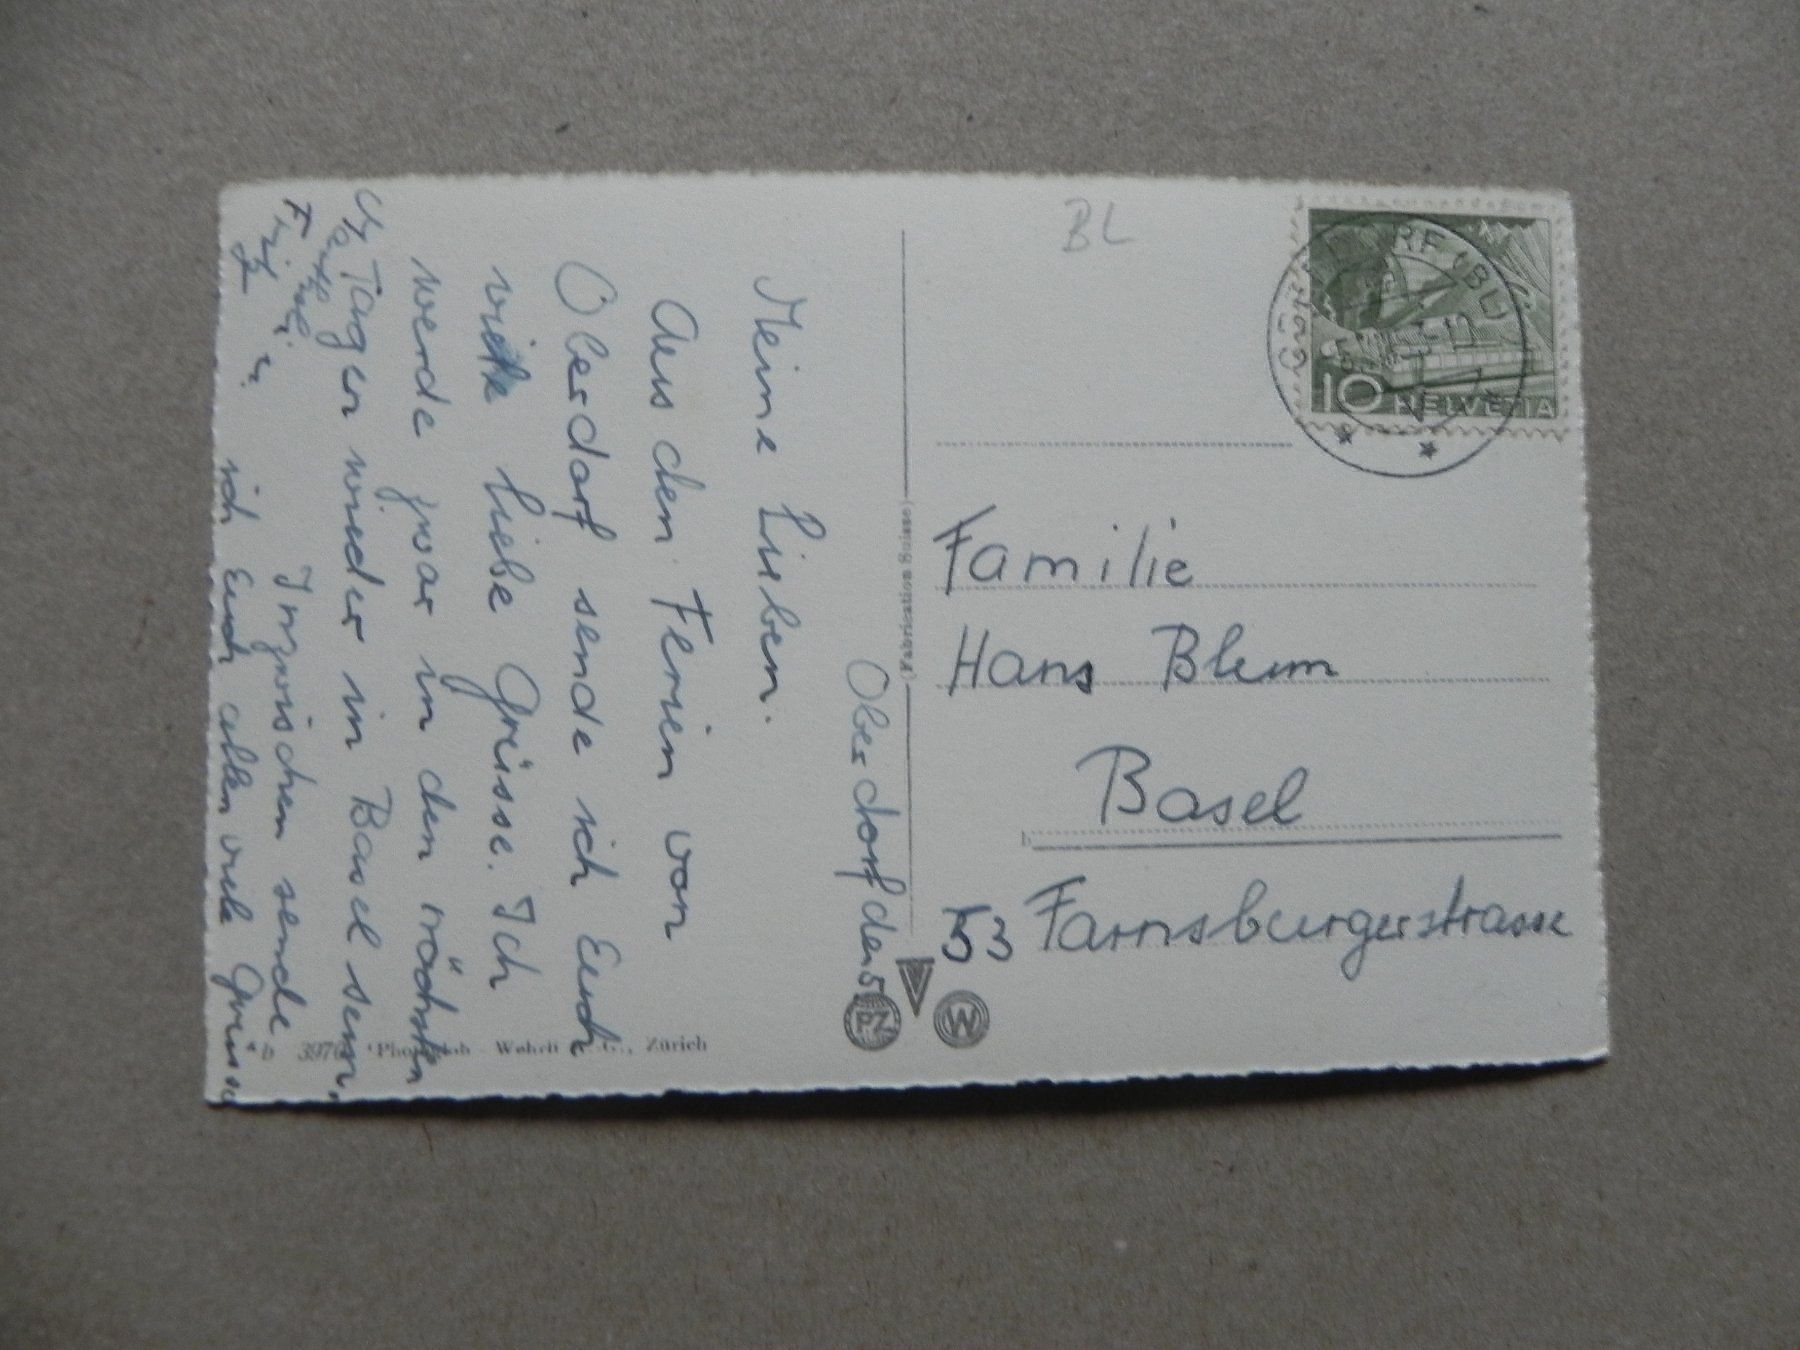 Oberdorf den 5.
Meine Lieben.
Aus den Ferien von
Oberdorf sende ich Euch
viele liebe Grüsse. Ich
werde zwar in den nächsten
Tagen wieder in Basel sein,
Inzwischen sende
ich Euch allen viele Grüsse
BL
DORF (BL)
10 HELVETIA
Familie
Hans Blum
Basel
53 Farnsburgerstrasse
(Fabrication Suisse)
PZ
W
Wehrli A.G., Zürich